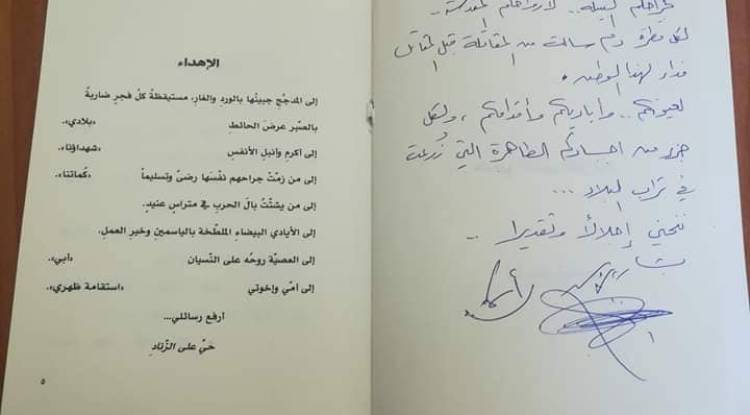 لجراحكم النبيلة.. لأرواحكم المقدسة..
لكل قطرة دم سالت من المقاتلة قبل المقاتل
فداءً لهذا الوطن.
لعيونكم.. وأياديكم وأقدامكم، ولكل
جزء من أجسادكم الطاهرة التي زُرعت
في تراب البلاد...
ننحني إجلالاً وتقديراً..
الإهداء
إلى المدجّج جبينُها بالورد والغار، مستيقظةً كلّ فجرٍ ضاربةً
بالصّبر عرضَ الحائطِ «بلادي».
إلى أكرمِ وأنبلِ الأنفسِ «شهداؤنا».
إلى من زمّتْ جراحهم نفْسَها رضىً وتسليماً «كُماتنا».
إلى من يشتّتُ بالَ الحربِ في متراسٍ عنيدٍ.
إلى الأيادي البيضاءِ الملطّخة بالياسمين وخبزِ العملِ.
إلى العصيّة روحُه على النّسيان «أبي».
إلى أمّي وإخوتي «استقامة ظهري».
أرفع رسائلي...
حَيّ على الزّنادِ
٥